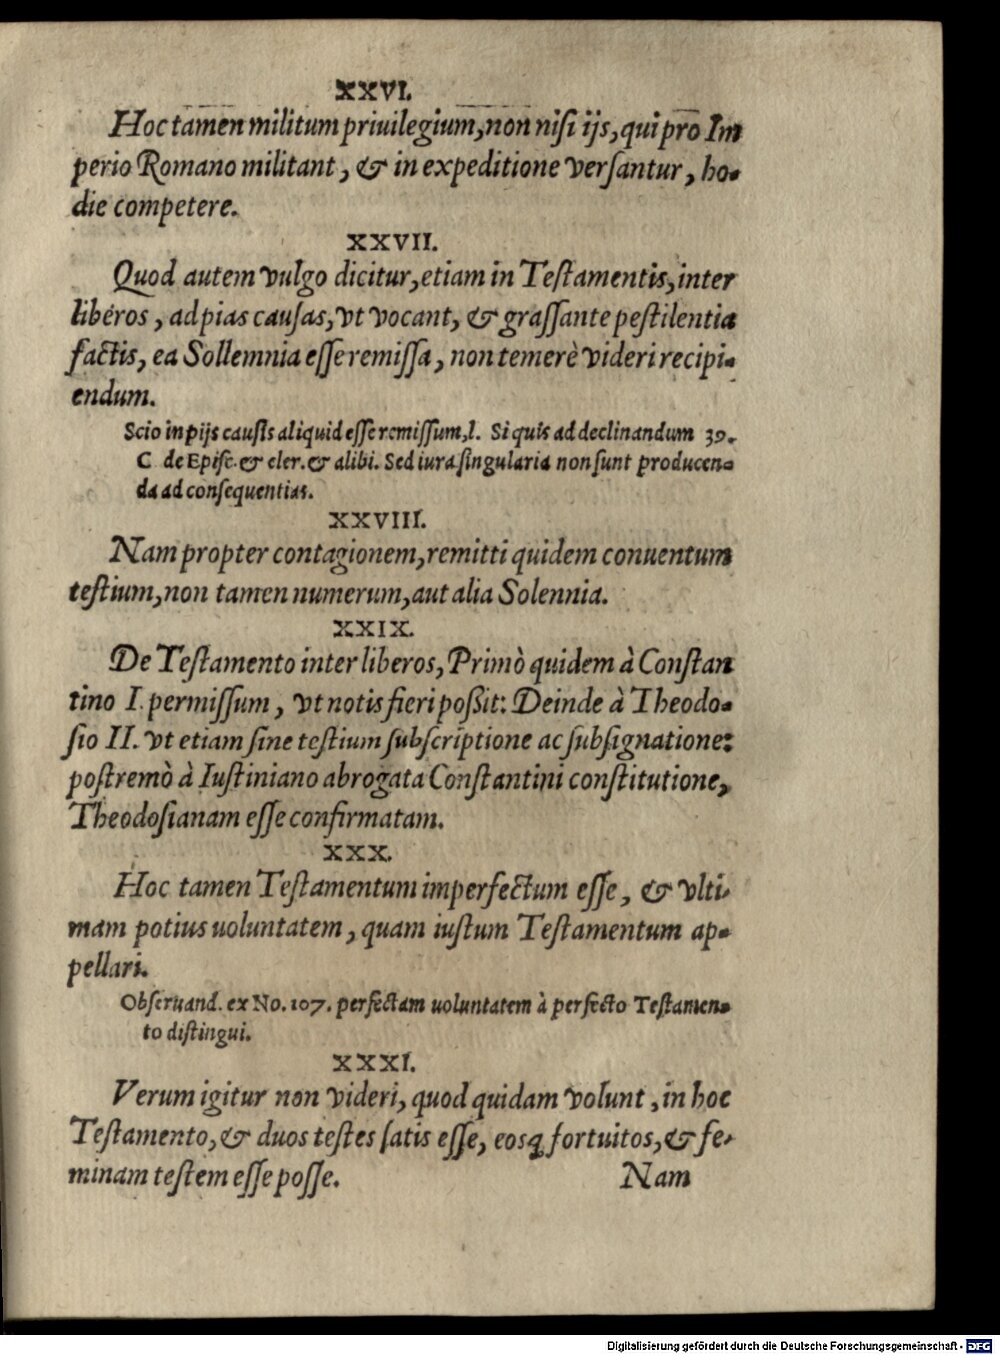 XXVI.
Hoc tamen militum priuilegium, non nisi ijs, qui pro Im
perio Romano militant, & in expeditione versantur, ho-
die competere.
XXVII.
Quod autem vulgo dicitur, etiam in Testamentis, inter
liberos, ad pias causas, vt vocant, & grassante pestilentia
factis, ea Sollemnia esse remissa, non temerè videri recipi-
endum.
Scio in pijs causis aliquid esse remissum, l. Si quis ad declinandum 39.
C de Episc. & cler. & alibi. Sed iura singularia non sunt producen-
da ad consequentias.
XXVIII.
Nam propter contagionem, remitti quidem conuentum
testium, non tamen numerum, aut alia Solennia.
XXIX.
De Testamento inter liberos, Primò quidem à Constan
tino I. permissum, vt notis fieri poßit: Deinde à Theodo-
sio II. vt etiam sine testium subscriptione ac subsignatione:
postremò à Iustiniano abrogata Constantini constitutione,
Theodosianam esse confirmatam.
XXX.
Hoc tamen Testamentum imperfectum esse, & vlti-
mam potius uoluntatem, quam iustum Testamentum ap-
pellari.
Obseruand. ex No. 107. perfectam uoluntatem à perfecto Testamen-
to distingui.
XXXI.
Verum igitur non videri, quod quidam volunt, in hoc
Testamento, & duos testes satis esse, eosq; fortuitos, & fe-
minam testem esse posse.
Nam
Digitalisierung gefördert durch die Deutsche Forschungsgemeinschaft - DFG